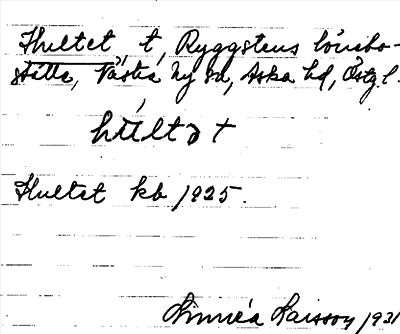 Hultet, t, Ryggstens lönebo-
ställe, Västra Ny sn, Aska hd, Östg l.
húltət
Hultet kb 1925.
Linnéa Larsson 1931